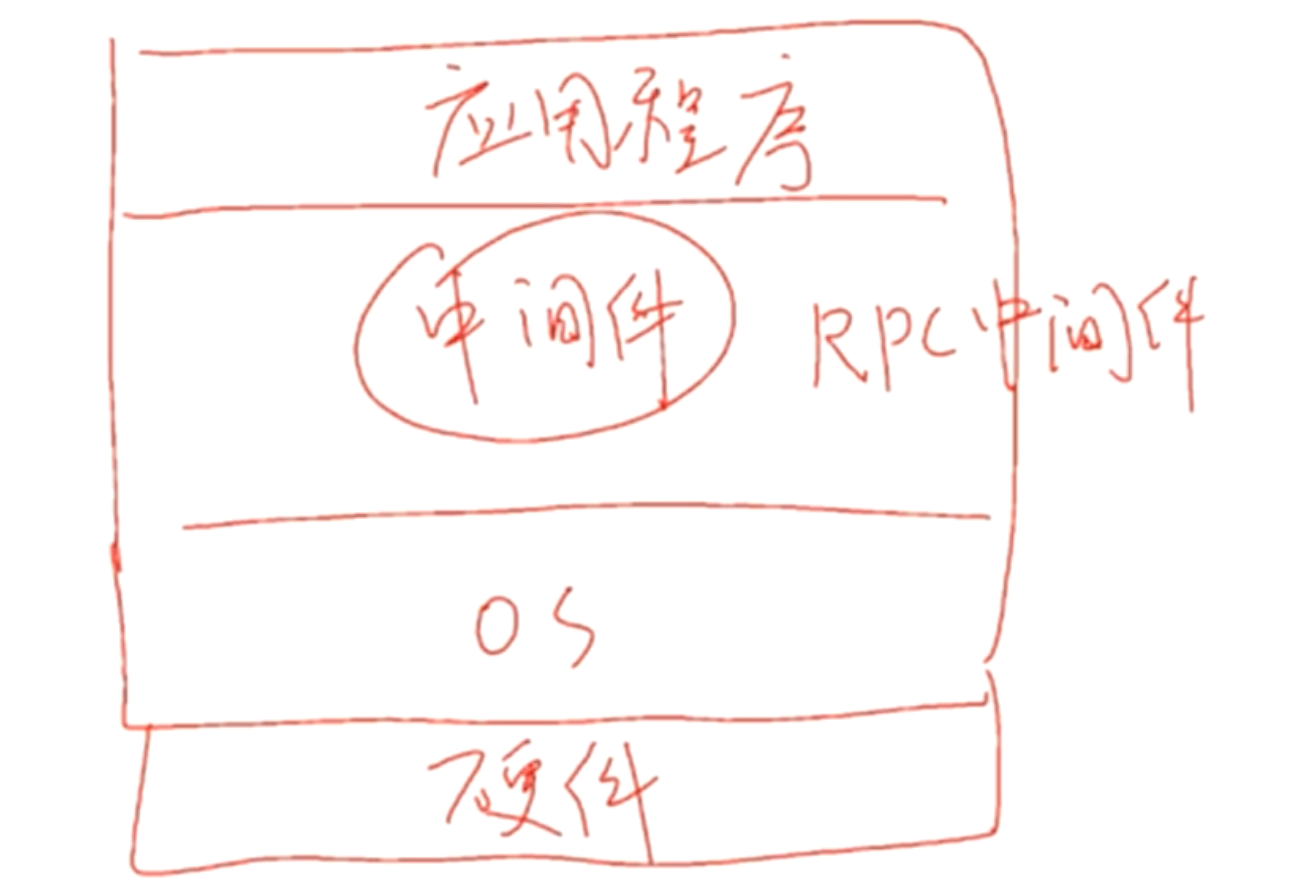 应用程序
中间件 RPC中间件
OS
硬件